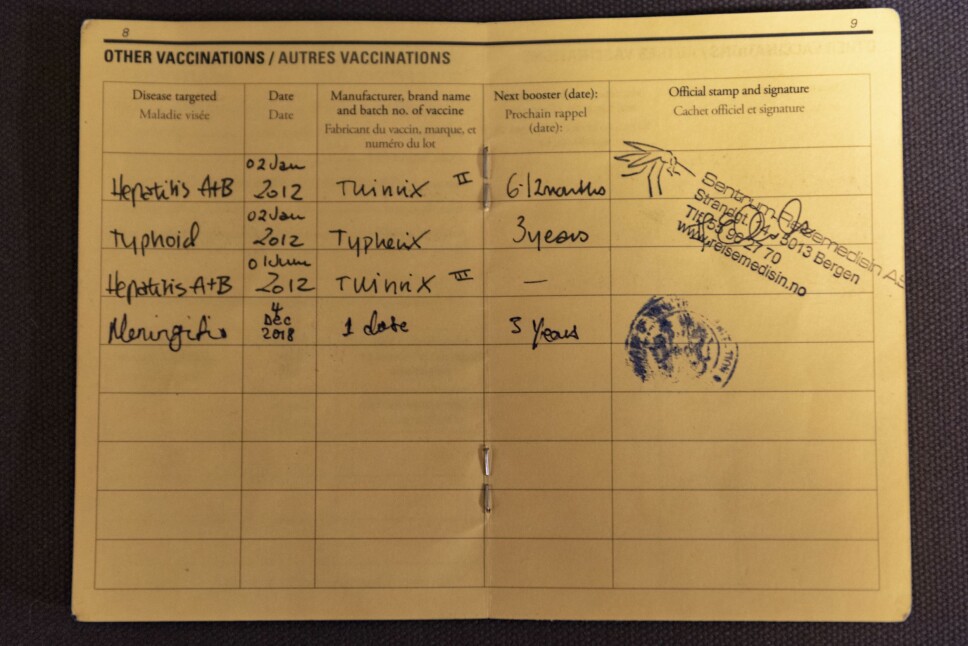 8
9
OTHER VACCINATIONS / AUTRES VACCINATIONS
Disease targeted
Maladie visée
Date
Date
Manufacturer, brand name
and batch no. of vaccine
Fabricant du vaccin, marque, et
numéro du lot
Next booster (date):
Prochain rappel
(date):
Official stamp and signature
Cachet officiel et signature
Hepatitis A+B
02 Jan
2012
Twinrix II
6-12 months
Typhoid
02 Jan
2012
Typherix
3 years
Hepatitis A+B
2012
Twinrix III
—
Meningitis
4
Dec
2018
1 dose
3 years
Sentrum Reisemedisin AS
5013 Bergen
www.reisemedisin.no